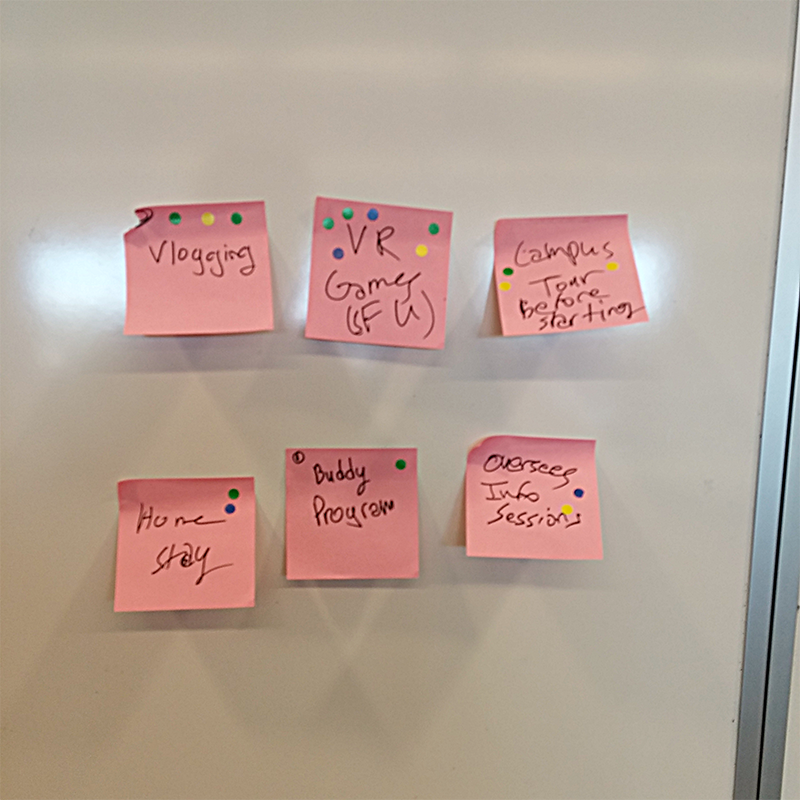 Vlogging
VR
Games
(SFU)
Campus
Tour
Before
starting
Home
stay
① Buddy
Program
Overseas
Info
Sessions